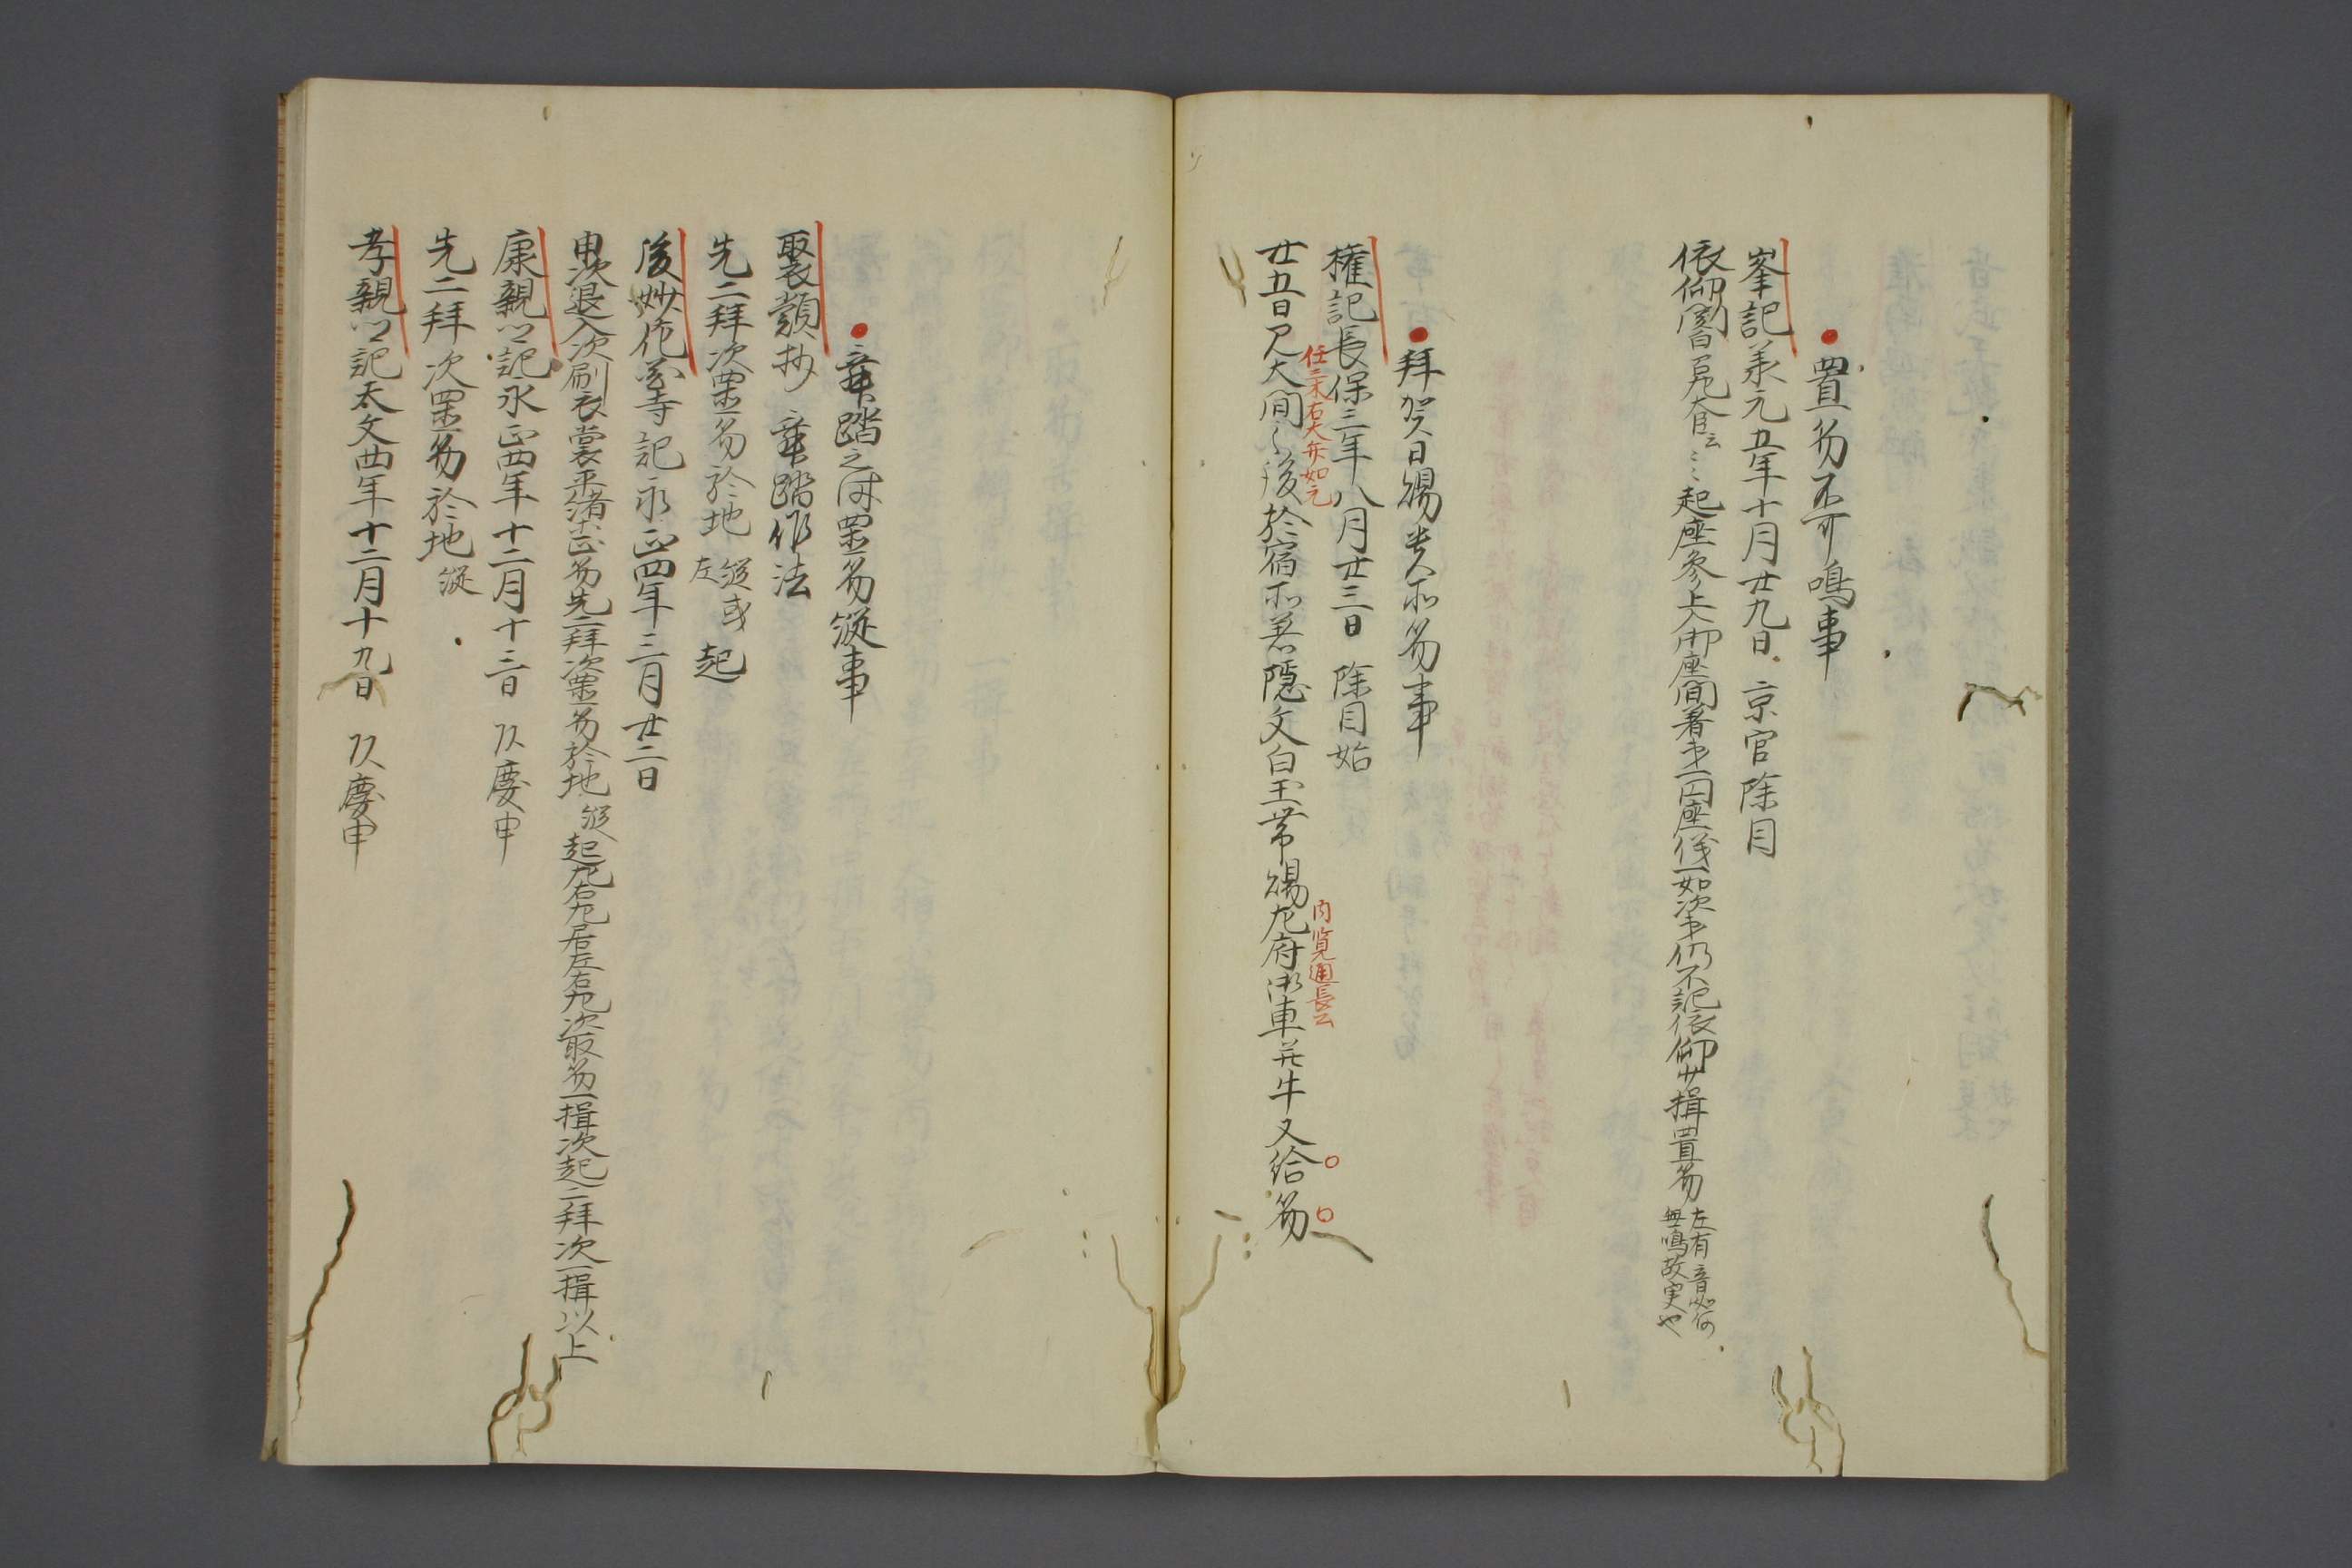 置笏不可鳴事
峯記承元五年十月廿九日 京官除目
依仰関白召左大臣云々起座参上大臣座間着第一円座儀一如次第仍不記依仰少揖置笏
左有音如何
無鳴故実也
拝賀日賜貴所笏事
権記長保三年八月廿三日 除目始
任三木右大弁如元
廿五日見大間之後於宿所着隠文白玉帯賜左府御車并牛又給笏
内覧道長公
舞踏之時置笏縦事
装頭抄 舞踏作法
先二拝次置笏於地 縦或左 起
後妙花寺記永正四年三月廿二日
申次退入次刷衣裳平緒等正笏先二拝次置笏於地 縦 起左右左居左右左次取笏一揖次起二拝次一揖以上
康親公記永正四年十二月十三日 以慶申
先二拝次置笏於地 縦
孝親公記大文四年十二月十九日 以慶申